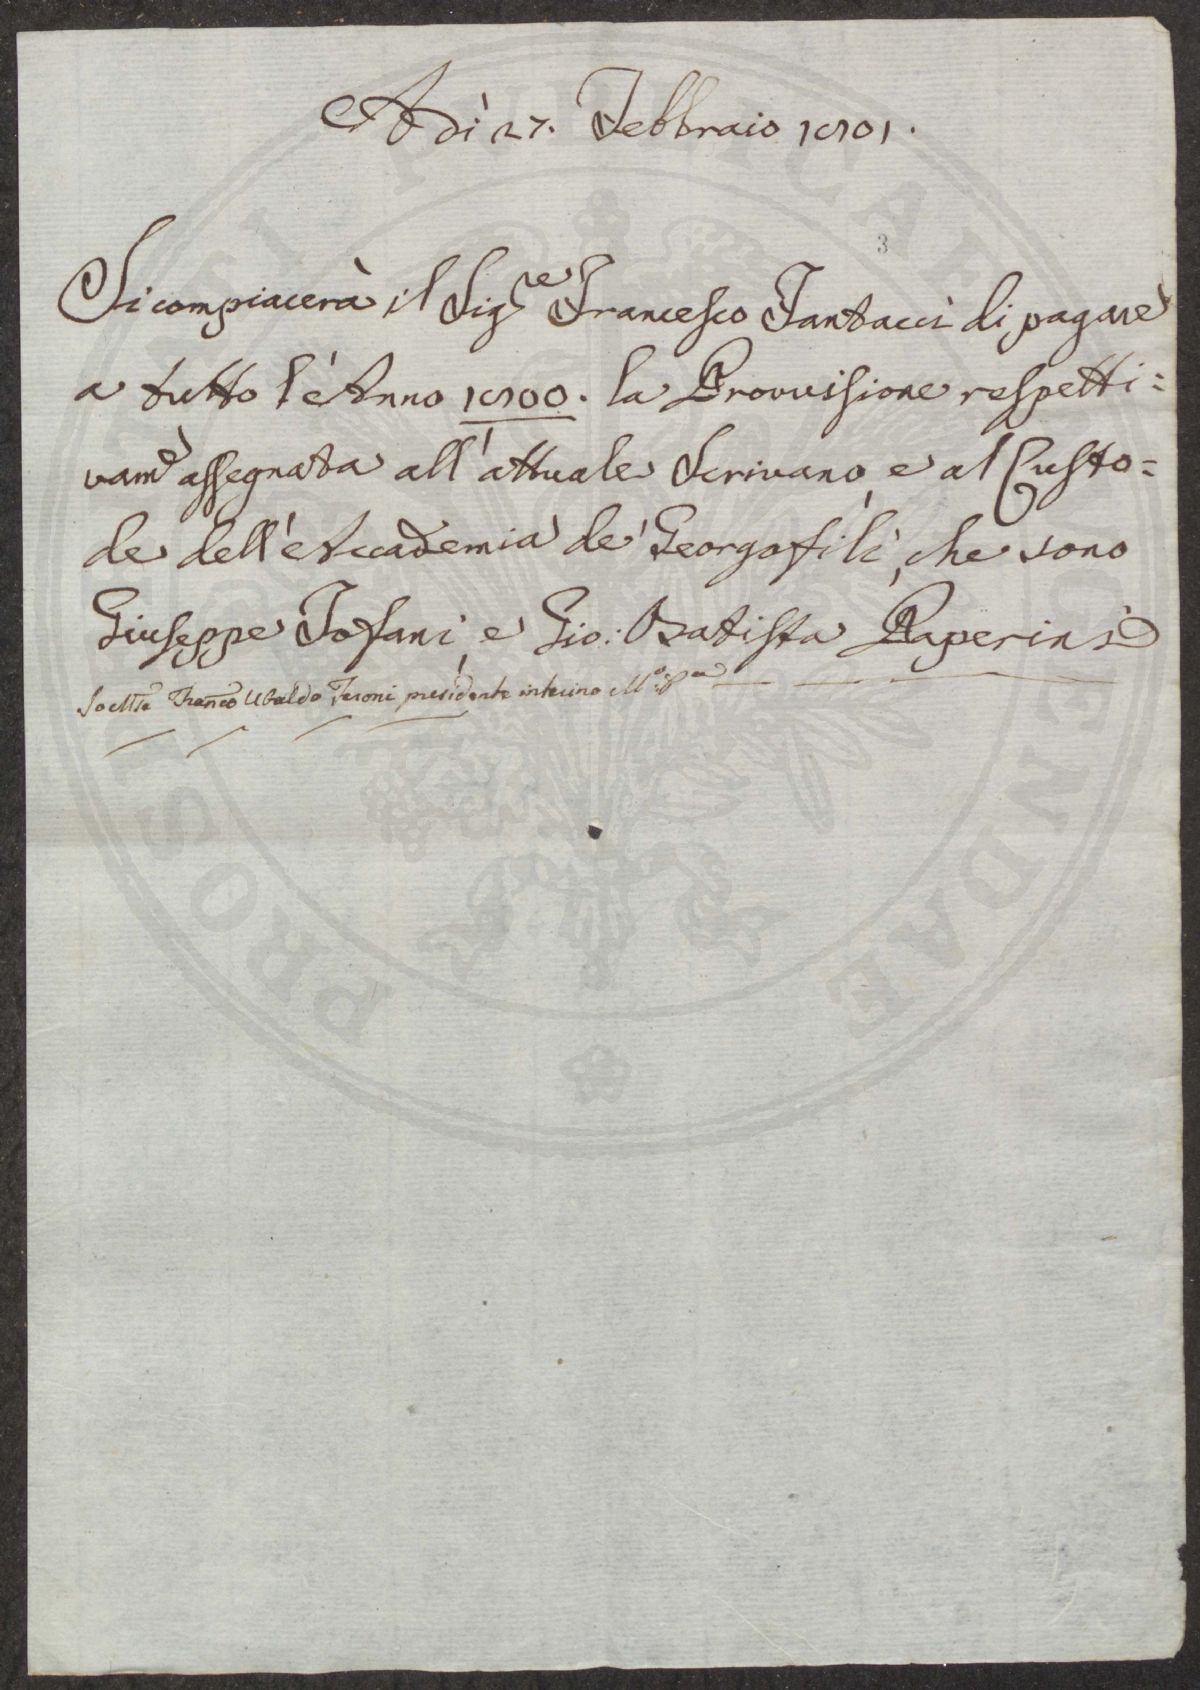 Adì 27. Febbraio 1801.
3
Si compiacerà il Sig.re Francesco Fantacci di pagare
a tutto l'Anno 1800. la Provvisione respetti=
vam.e assegnata all'attuale Scrivano, e al Custo=
de dell'Accademia de' Georgofili, che sono
Giuseppe Tofani, e Gio: Batista Paperini
Io Franco Ubaldo Feroni presidente interino
PROSPERITATI PUBLICAE AUGENDAE